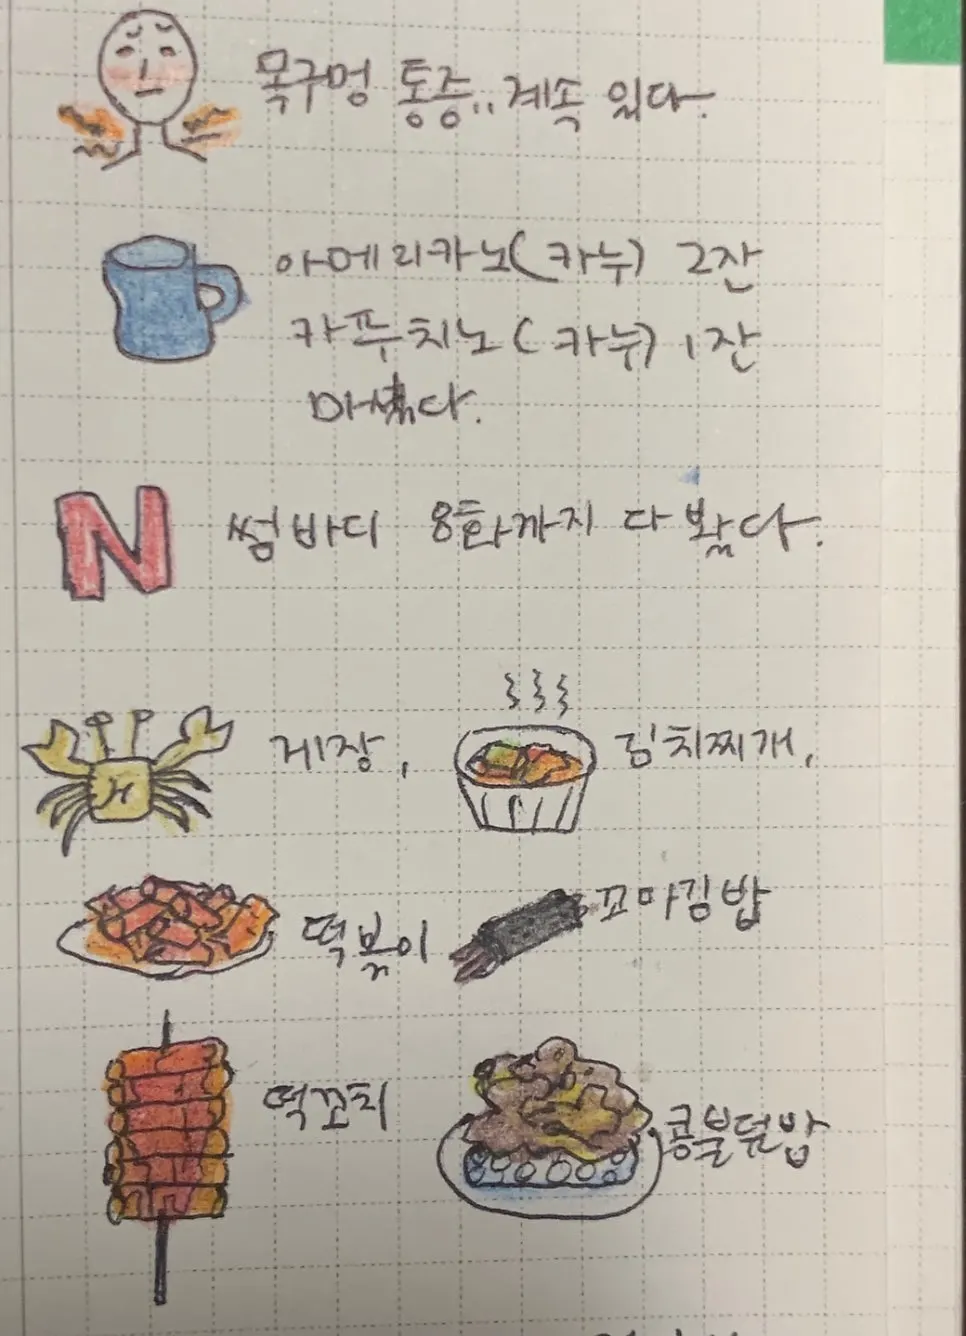 목구멍 통증.. 계속 있다.
아메리카노(카누) 2잔
카푸치노(카누) 1잔
마셨다.
N 썸바디 8화까지 다 봤다.
게장, 김치찌개,
떡볶이 꼬마김밥
떡꼬치 콩불덮밥